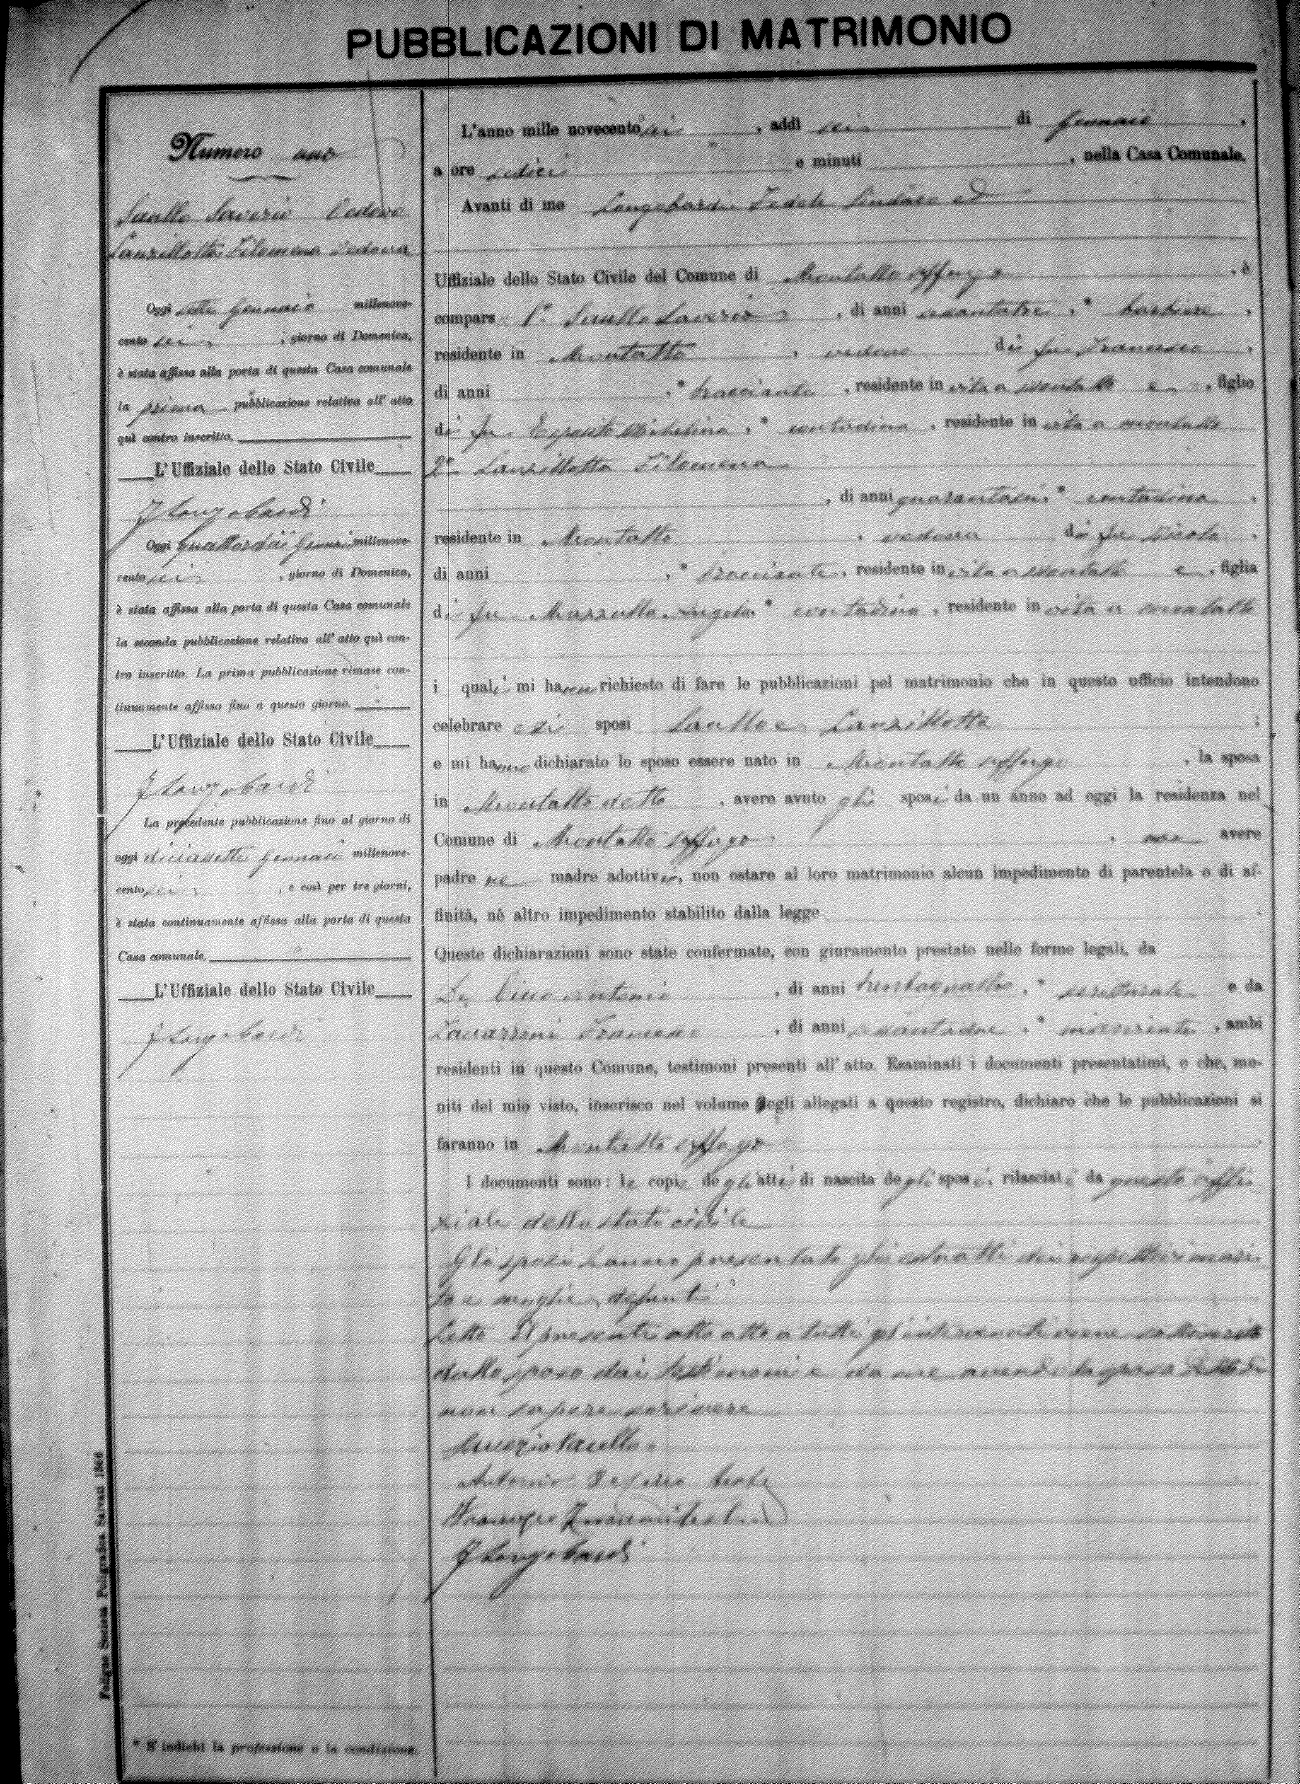 PUBBLICAZIONI DI MATRIMONIO
Numero uno
Saullo Saverio Vedovo
Lanzillotta Filomena Vedova
Oggi sette Gennaio millenove-
cento sei, giorno di Domenica,
è stata affissa alla porta di questa Casa comunale
la prima pubblicazione relativa all' atto
quì contro inscritto.
L'Uffiziale dello Stato Civile
F Longobardi
Oggi quattordici Gennaio millenove-
cento sei, giorno di Domenica,
è stata affissa alla porta di questa Casa comunale
la seconda pubblicazione relativa all' atto quì con-
tro inscritto. La prima pubblicazione rimase con-
tinuamente affissa fino a questo giorno.
L'Uffiziale dello Stato Civile
F Longobardi
La precedente pubblicazione fino al giorno di
oggi diciasette Gennaio millenove-
cento sei, e così per tre giorni,
è stata continuamente affissa alla porta di questa
Casa comunale.
L'Uffiziale dello Stato Civile
F Longobardi
* S' indichi la professione o la condizione.
L'anno mille novecento sei, addì sei di Gennaio,
a ore sedici e minuti, nella Casa Comunale.
Avanti di me Longobardi Fedele Sindaco ed
Uffiziale dello Stato Civile del Comune di Montalto Uffugo, è
compars 1° Saullo Saverio, di anni, * barbiere,
residente in Montalto, vedovo di fu Francesco,
di anni, * bracciante, residente in vita a Montalto e, figlio
di fu Esposito Michelina, * contadina, residente in vita a Montalto
2° Lanzillotta Filomena
, di anni quarantasei, * contadina,
residente in Montalto, vedova di fu Nicola,
di anni, * bracciante, residente in vita a Montalto e, figlia
di fu Mazzulla Angela * contadina, residente in vita a Montalto
i quali mi hanno richiesto di fare le pubblicazioni pel matrimonio che in questo ufficio intendono
celebrare essi sposi Saullo e Lanzillotta;
e mi hanno dichiarato lo sposo essere nato in Montalto Uffugo, la sposa
in Montalto detto, avere avuto gli sposi da un anno ad oggi la residenza nel
Comune di Montalto Uffugo, non avere
padre nè madre adottivi, non ostare al loro matrimonio alcun impedimento di parentela o di af-
finità, nè altro impedimento stabilito dalla legge.
Queste dichiarazioni sono state confermate, con giuramento prestato nelle forme legali, da
Antonio, di anni trentaquattro, * e da
Francesco, di anni, *, ambi
residenti in questo Comune, testimoni presenti all' atto. Esaminati i documenti presentatimi, e che, mu-
niti del mio visto, inserisco nel volume degli allegati a questo registro, dichiaro che le pubblicazioni si
faranno in Montalto Uffugo.
I documenti sono: le copie degli atti di nascita degli sposi, rilasciati da questo uffi
ziale dello stato civile
Gli sposi hanno presentato gli estratti dei rispettivi mari
to e moglie defunti
Letto il presente atto a tutti gl'intervenuti viene sottoscritto
dallo sposo dai testimoni e da me avendo la sposa detto di
non sapere scrivere
Saverio Saullo
Antonio
F Longobardi